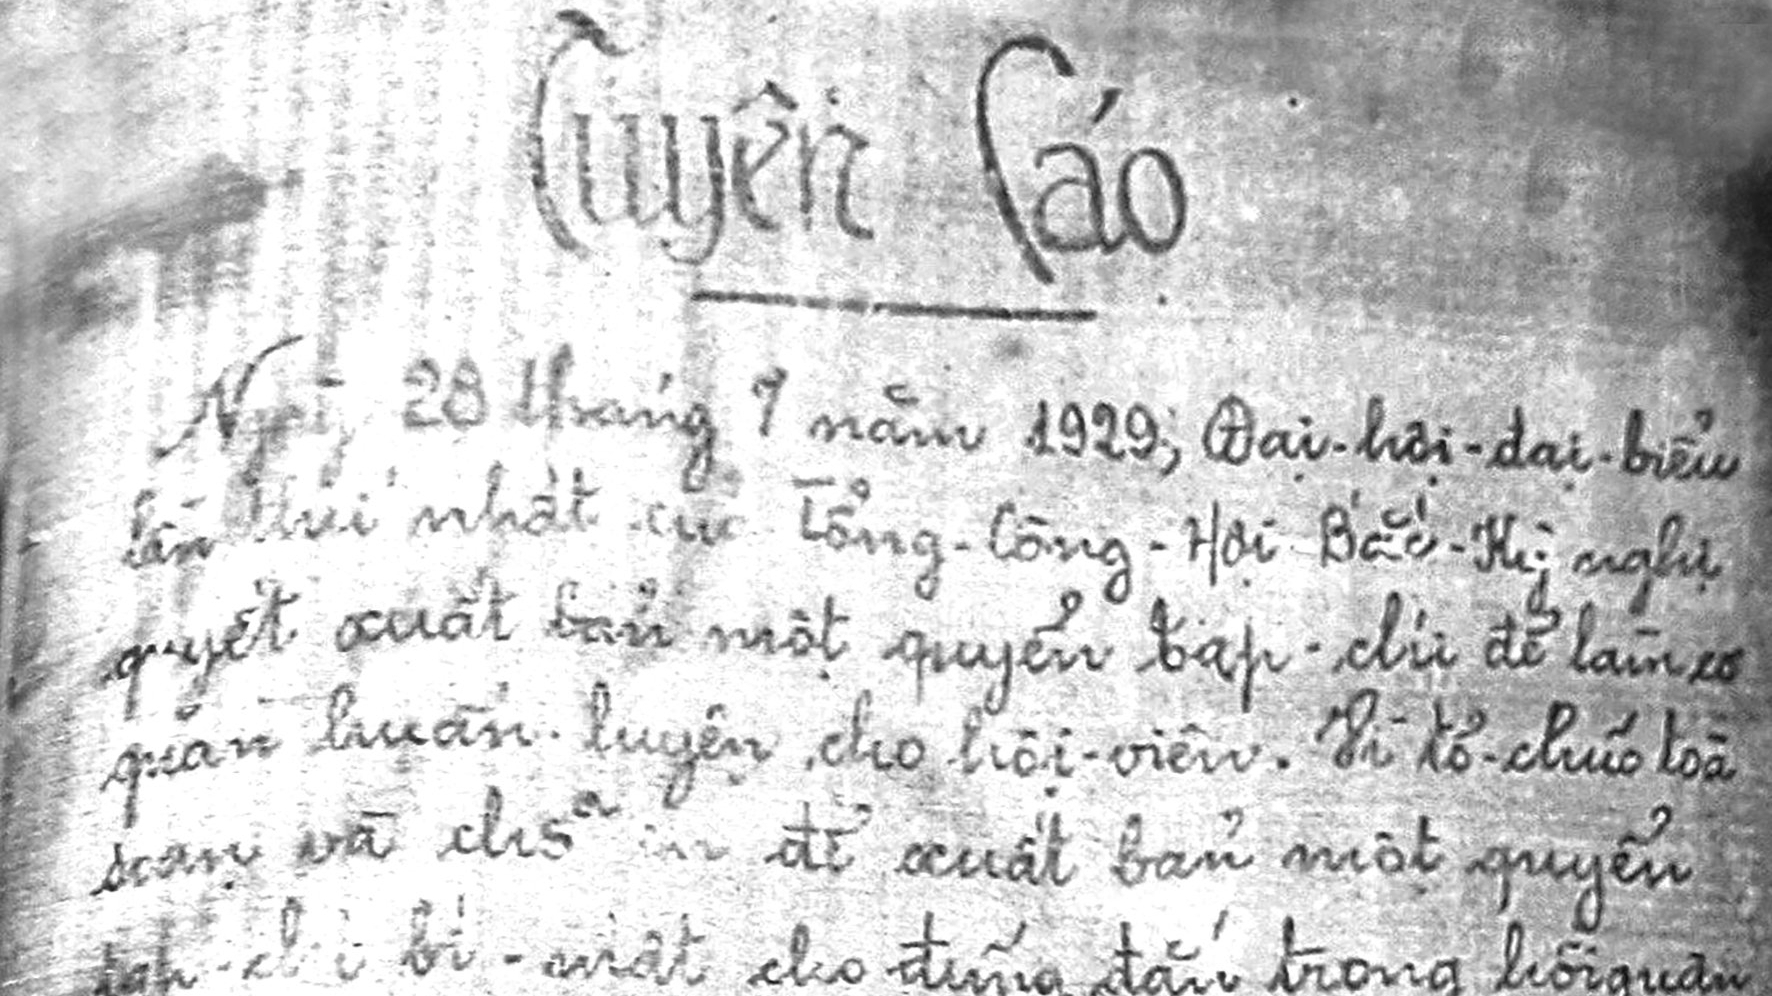 Tuyên Cáo
Ngày 28 tháng 7 năm 1929, Đại-hội-đại-biểu
lần thứ nhất của Tổng-Công-Hội Bắc-Kỳ nghị
quyết xuất bản một quyển tạp-chí để làm cơ
quan huấn-luyện cho hội-viên. Vì tổ-chức toà
soạn và chỗ in để xuất bản một quyển
tạp-chí bí-mật cho đứng đắn trong hồi quân